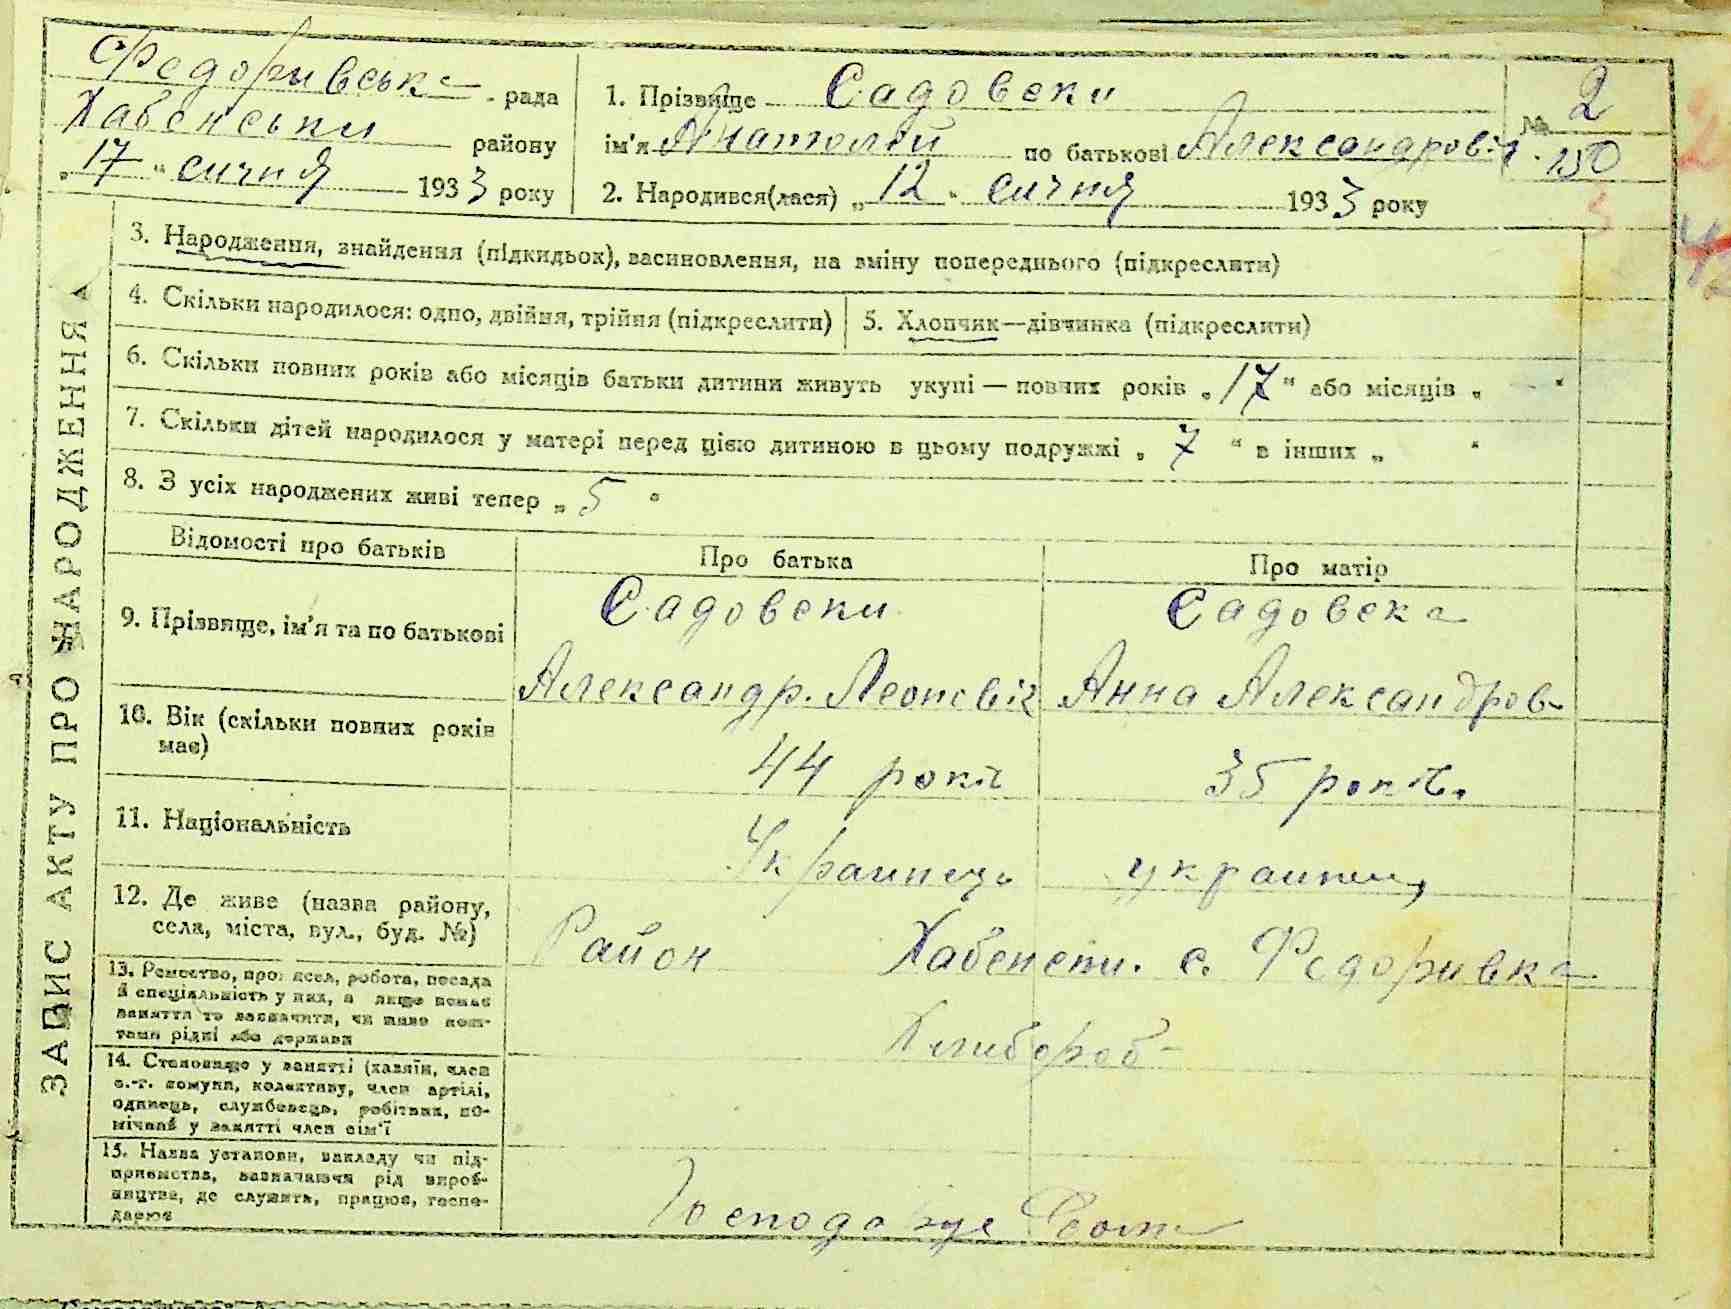 Федоривська рада
Хабенськи району
„17“ сичня 1933 року
1. Прізвище Садовски
ім'я Анатолій по батькові Александровіч
2. Народився(лася) „12“ сичня 1933 року
№ 2
150
3. Народження, знайдення (підкидьок), васиновлення, на зміну попереднього (підкреслити)
4. Скільки народилося: одно, двійня, трійня (підкреслити)
5. Хлопчик—дівчинка (підкреслити)
6. Скільки повних років або місяців батьки дитини живуть укупі — повних років „17“ або місяців „ “
7. Скільки дітей народилося у матері перед цією дитиною в цьому подружжі „7“ в інших „ “
8. З усіх народжених живі тепер „5“
ЗАПИС АКТУ ПРО НАРОДЖЕННЯ
Відомості про батьків
Про батька
Про матір
9. Прізвище, ім'я та по батькові
Садовски
Александр. Леоновіч
Садовска
Анна Александров-
10. Вік (скільки повних років
має)
44 років
35 років.
11. Національність
Украинець
украинец
12. Де живе (назва району,
села, міста, вул., буд. №)
Район Хабенски. с. Федоривка
13. Ремество, професія, робота, посада
й спеціяльність у них, а якщо немає
заняття то зазначити, чи живе кош-
тами рідні або держави
Хлибороб-
14. Становище у занятті (хазяїн, член
с.-г. комуни, колективу, член артілі,
одинець, службовець, робітник, по-
мічний у занятті член сім'ї
15. Назва установи, закладу чи під-
приємства, зазначаючи рід вироб-
ництва, де служить, працює, госпо-
дарює
Господарує